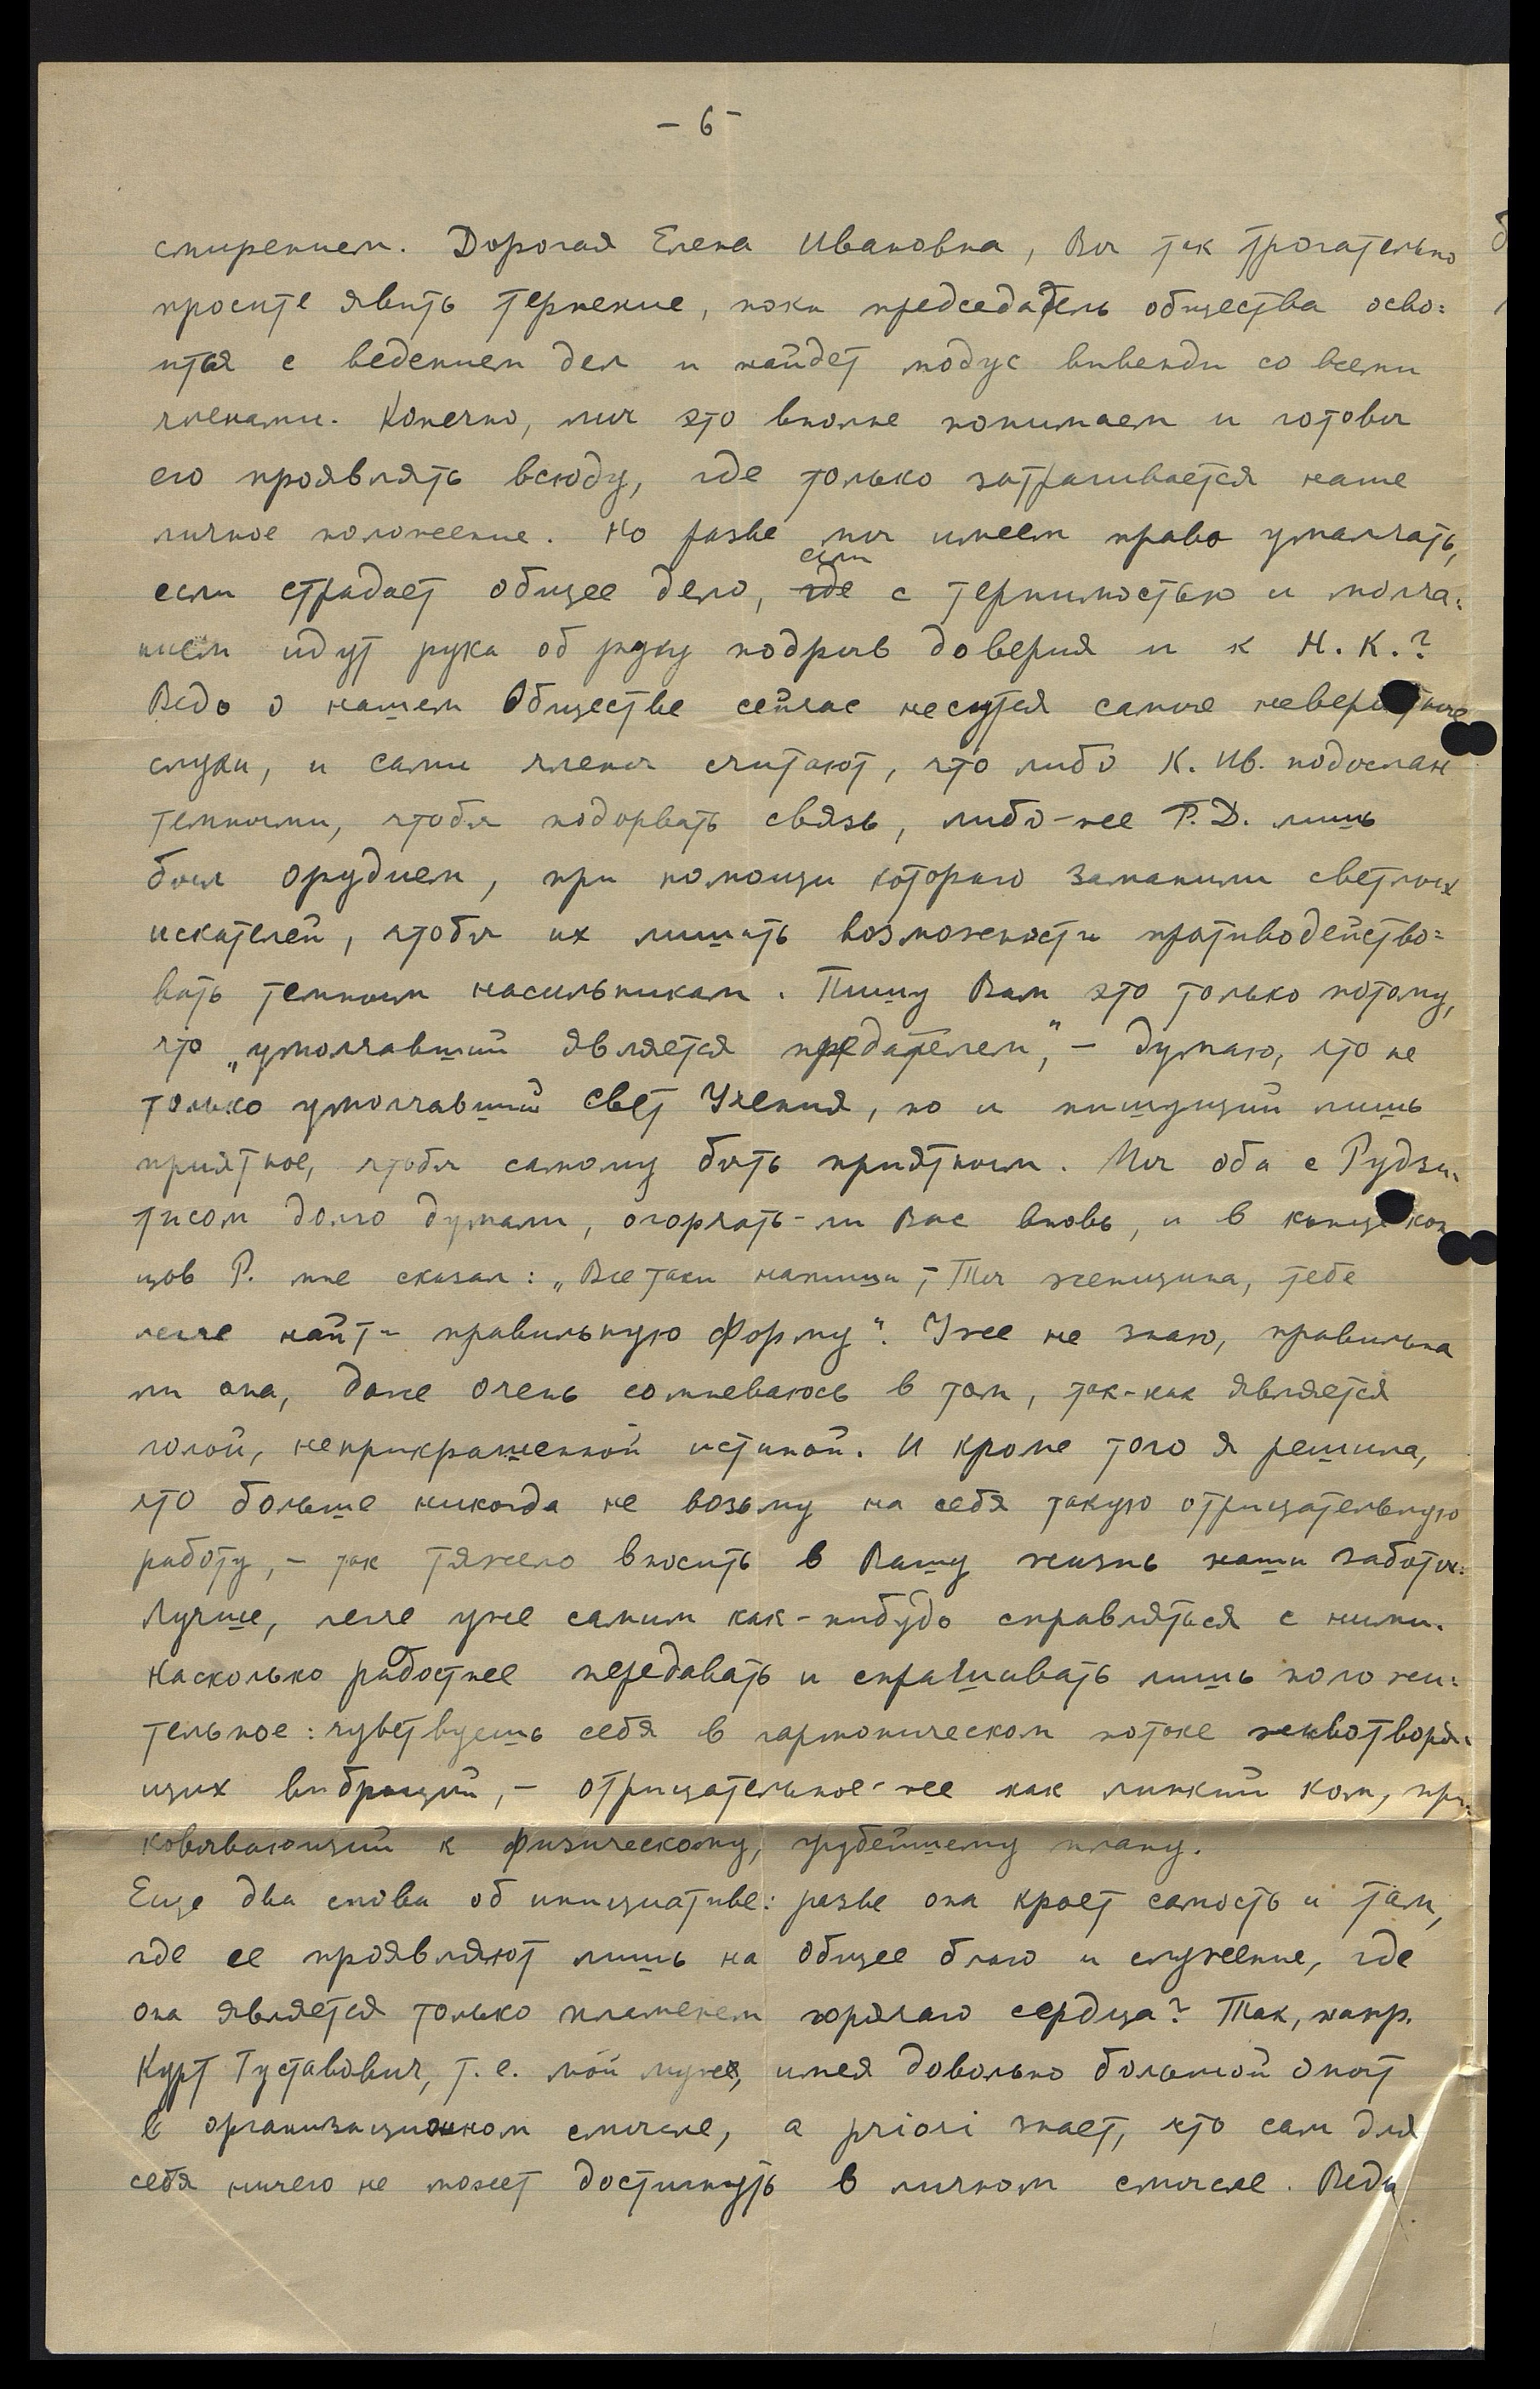 - 6 -
смирением. Дорогая Елена Ивановна, Вы так трогательно
просите явить терпение, пока председатель общества осво=
ится с ведением дел и найдет модус вивенди со всеми
членами. Конечно, мы это вполне понимаем и готовы
его проявлять всюду, где только затрагивается наше
личное положение. Но разве мы имеем право умалчать,
если
если страдает общее дело, где с терпимостью и молча=
нием идут рука об руку подрыв доверия и к Н. К.?
Ведь о нашем Обществе сейчас несутся самые невероятные
слухи, и сами члены считают, что либо К. Ив. подослан
темными, чтобы подорвать связь, либо-же Р. Д. лишь
был орудием, при помощи которого заманили светлых
искателей, чтобы их лишить возможности противодейство=
вать темным насильникам. Пишу Вам это только потому,
что „умолчавший является предателем", - думаю, что не
только умолчавший Свет Учения, но и пишущий лишь
приятное, чтобы самому быть приятным. Мы оба с Рудзи-
тисом долго думали, огорчать-ли Вас вновь, и в конце кон
цов Р. мне сказал: „Все таки напиши, - Ты женщина, тебе
легче найти правильную форму". Уже не знаю, правильна
ли она, даже очень сомневаюсь в том, так-как является
голой, неприкрашенной истиной. И кроме того я решила,
что больше никогда не возьму на себя такую отрицательную
работу, - так тяжело вносить в Вашу жизнь наши заботы.
Лучше, легче уже самим как-нибудь справляться с ними.
Насколько радостнее передавать и спрашивать лишь положи-
тельное: чувствуешь себя в гармоническом потоке животворя-
щих вибраций, - отрицательное-же как липкий ком, при-
ковывающий к физическому, грубейшему плану.
Еще два слова об инициативе: разве она кроет самость и там,
где ее проявляют лишь на общее благо и служение, где
она является только пламенем горячаго сердца? Так, напр.
Курт Густавович, т. е. мой муж, имея довольно большой опыт
в организационном смысле, a priori знает, что сам для
себя ничего не может достигнуть в личном смысле. Ведь